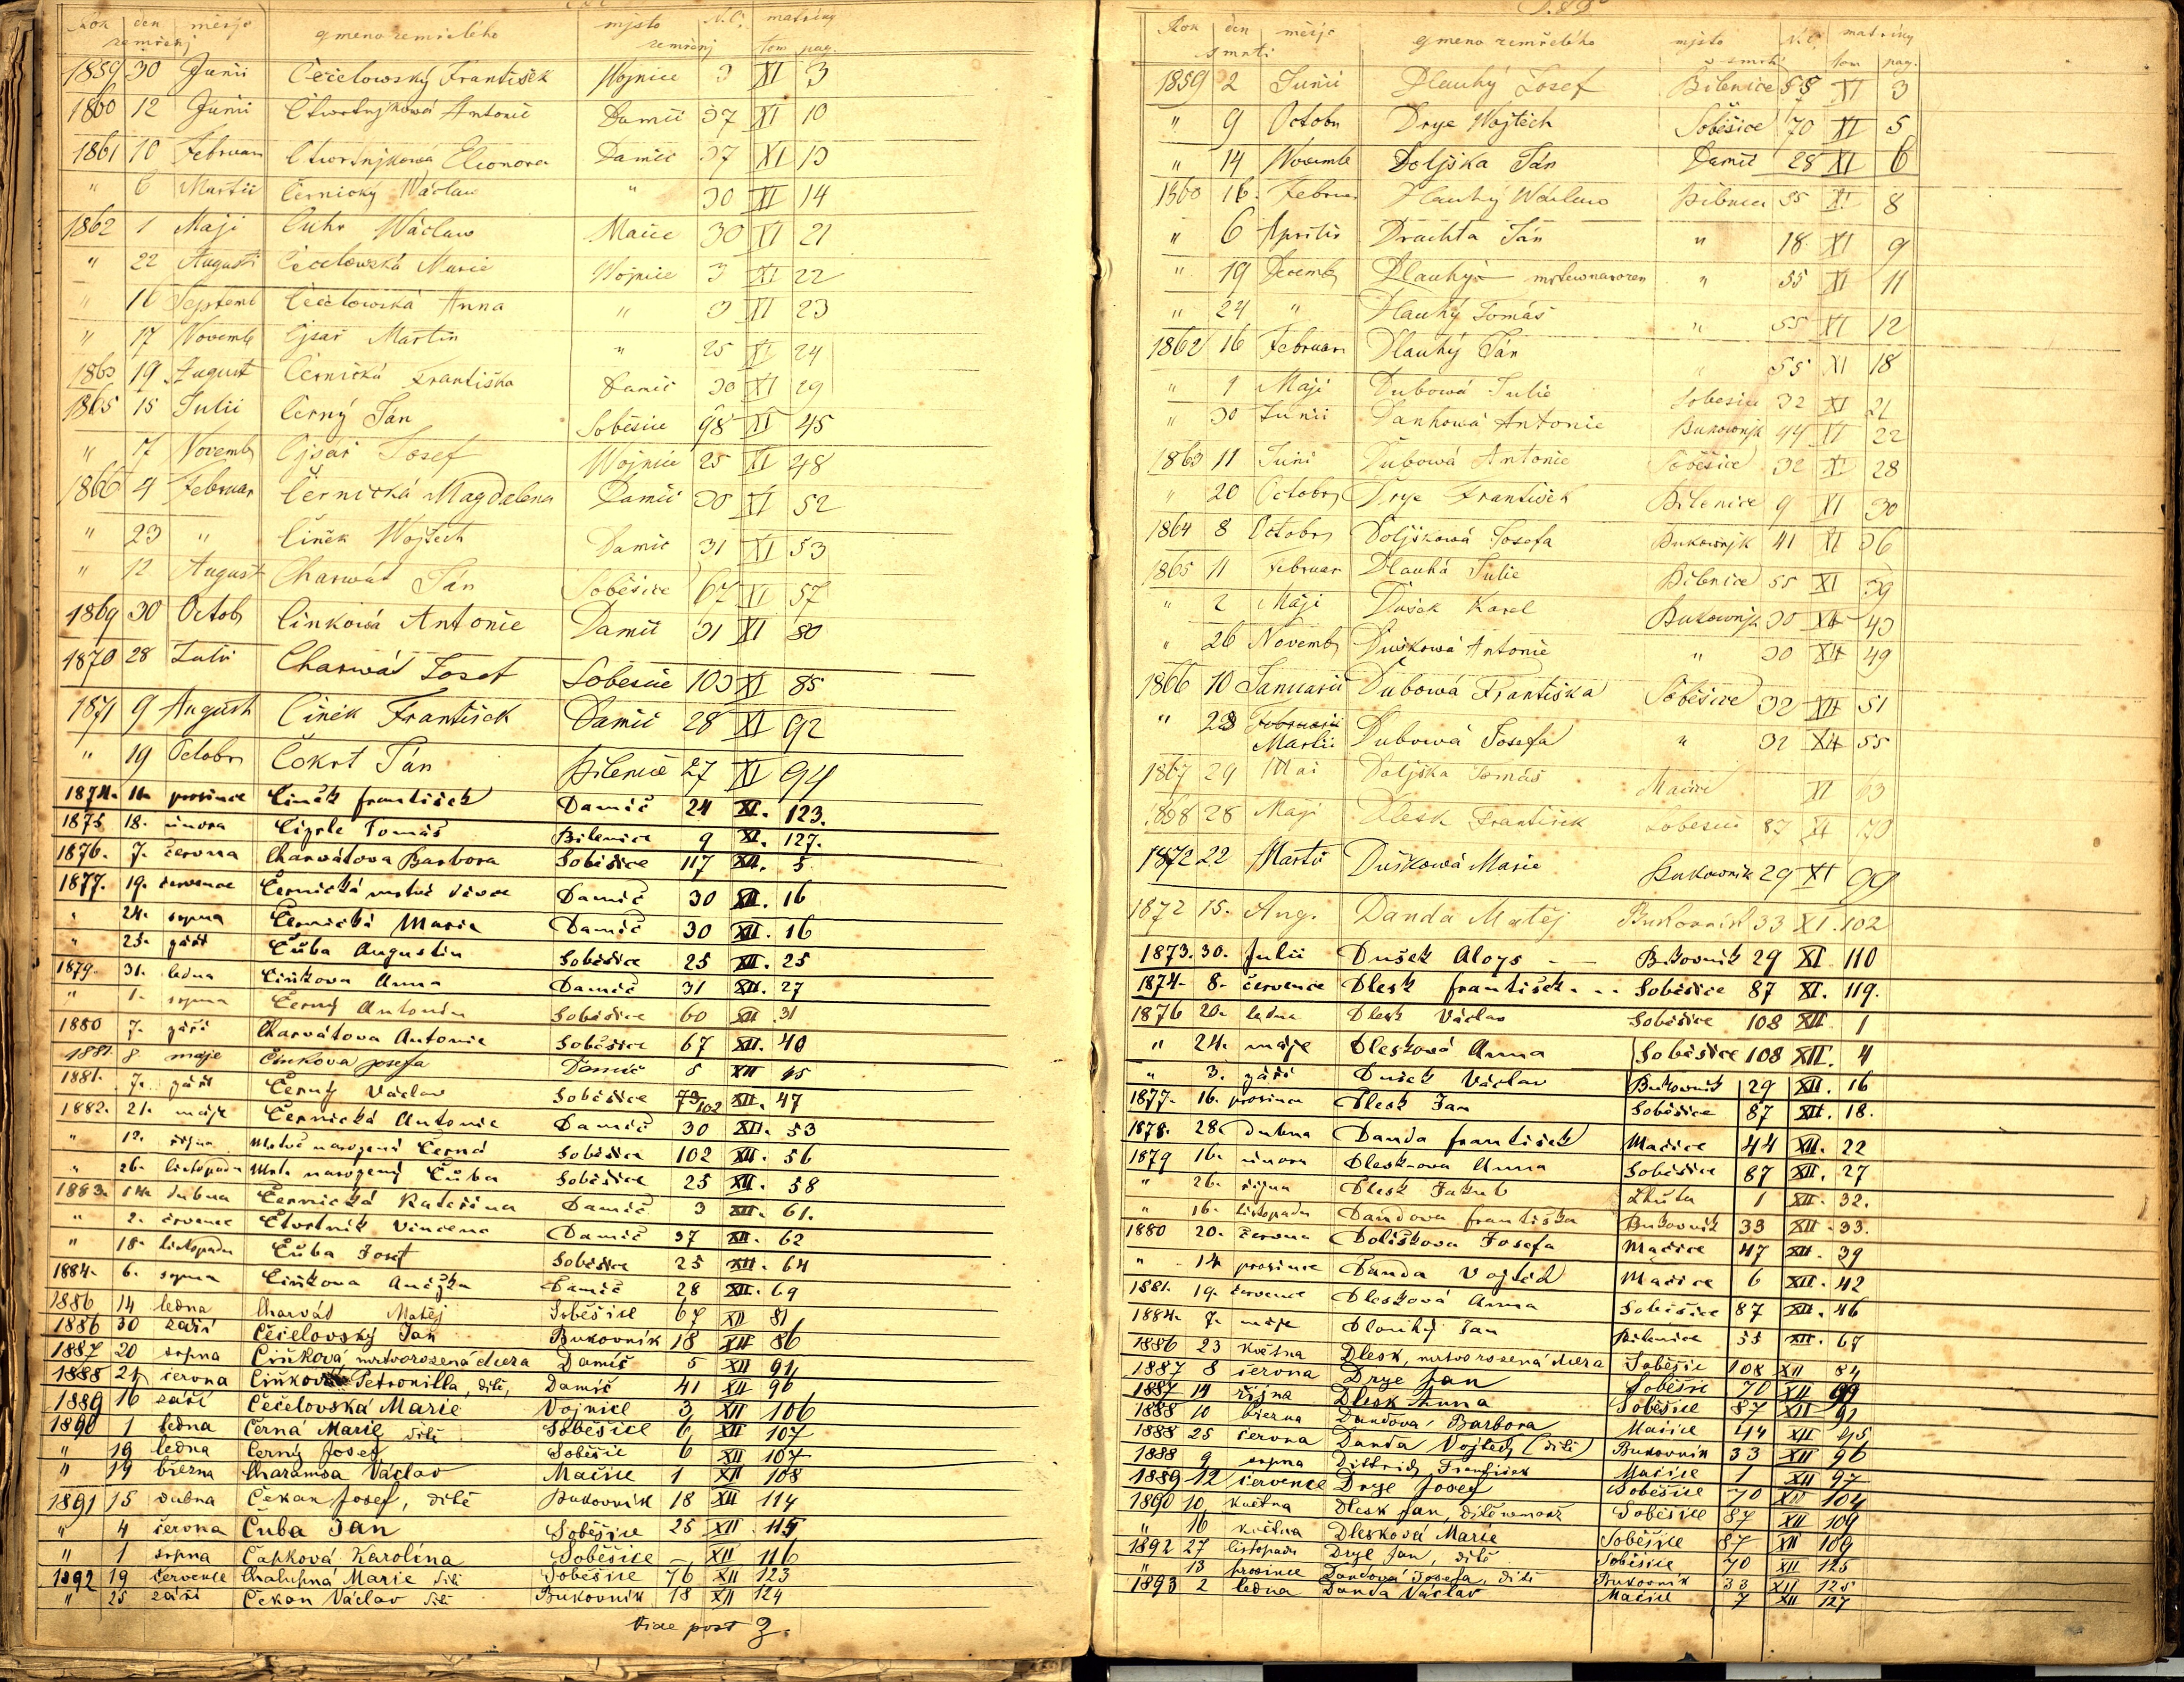 Rok den měsje gmeno zemřelého mjsto N.C. matriky
zemřenj zemřenj tom pag.
1859 30 Junii Čečelowský František Wojnice 3 XI 3
1860 12 Junii Čtwrtnjkowá Antonie Damič 37 XI 10
1861 10 Februar Čtwrtnjkowá Eleonora Damič 37 XI 13
" 6 Martii Černický Wáclaw " 30 XI 14
1862 1 Maji Wáclaw Mačice 30 XI 21
" 22 Augusti Čečelowská Marie Wojnice 3 XI 22
" 16 Septemb Čečelowská Anna " 3 XI 23
" 17 Novemb Cjsař Martin " 25 XI 24
1863 19 August Černická Františka Damič 30 XI 29
1865 15 Julii Černý Ján Soběšice 98 XI 45
" 17 Novemb Cjsař Josef Wojnice 25 XI 48
1866 4 Februar Černická Magdalena Damič 30 XI 52
" 23 " Činěk Wojtěch Damič 31 XI 53
" 12 August Charwát Ján Soběšice 67 XI 57
1869 30 Octob Cinkowá Antonie Damič 31 XI 80
1870 28 Julii Charwát Josef Soběšice 103 XI 85
1871 9 August Činěk František Damič 28 XI 92
" 19 Octobr Čokrt Ján Bilenice 27 XI 94
1874. 11. prosince Činěk František Damič 24 XI. 123.
1875 18. února Cizrle Tomáš Bilenice 9 XI. 127.
1876. 7. června Charvátova Barbora Soběšice 117 XII. 5.
1877. 19. července Černická mrtvé děvče Damič 30 XII. 16
" 24. srpna Černická Marie Damič 30 XII. 16
" 25. září Čuba Augustin Soběšice 25 XII. 25
1879. 31. ledna Čiňkova Anna Damič 31 XII. 27
" 1. srpna Černý Antonín Soběšice 60 XII 31
1880 7. září Charvátova Antonie Soběšice 67 XII. 40
1881. 8 máje Činkova Josefa Damič 5 XII 45
1881. 7. září Černý Václav Soběšice 73 102 XII. 47
1882. 21. máje Černická Antonie Damič 30 XII. 53
" 12. října Mrtvě narozená Černá Soběšice 102 XII. 56
" 26. listopadu Mrtv. narozený Čuba Soběšice 25 XII. 58
1883. 14. dubna Černická Kateřina Damič 3 XII. 61.
" 2. července Čtvrtník Vincenc Damič 37 XII. 62
" 18. listopadu Čuba Josef Soběšice 25 XII. 64
1884. 6. srpna Čiňkova Anežka Damič 28 XII. 69
1886 14 ledna Charvát Matěj Soběšice 67 XII 81
1886 30 září Čečelovský Jan Bukovník 18 XII 86
1887 20 srpna Čiňková, mrtvorozená dcera Damič 5 XII 91
1888 21 června Čiňková Petronilla, dítě, Damič 41 XII 96
1889 16 září Čečelovská Marie Vojnice 3 XII 106
1890 1 ledna Černá Marie dítě Soběšice 6 XII 107
" 19 ledna Černý Josef Soběšice 6 XII 107
" 19 března Charamsa Václav Mačice 1 XII 108
1891 15 dubna Čekan Josef, dítě Bukovník 18 XII 114
" 4 června Čuba Jan Soběšice 25 XII 115
" 1 srpna Čapková Karolína Soběšice – XII 116
1892 19 července Chalupná Marie dítě Soběšice 76 XII 123
" 25 září Čekan Václav dítě Bukovník 18 XII 124
Vide post Z.
Rok den měsje gmeno zemřelého mjsto N.C. matriky
smrti smrti tom pag.
1859 2 Junii Dlauhý Josef Bilenice 55 XI 3
" 9 Octobr Drye Wojtěch Soběšice 70 XI 5
" 14 Novemb Doljška Ján Damič 28 XI 6
1860 16. Februar Dlauhý Wáclaw Bilenice 55 XI 8
" 6 Aprilis Drachta Ján " 18 XI 9
" 19 Decemb Dlauhý mrtewnarozen " 55 XI 11
" 24 " Dlauhý Tomáš " 55 XI 12
1862 16 Februar Dlauhý Ján " 55 XI 18
" 1 Maji Dubowá Julie Soběšice 32 XI 21
" 30 Junii Daňhowá Antonie Bukownjk 44 XI 22
1863 11 Juni Dubowá Antonie Soběšice 32 XI 28
" 20 Octobr Drye František Bilenice 9 XI 30
1864 8 Octobr Doljškowá Josefa Bukownjk 41 XI 36
1865 11 Februar Dlauhá Julie Bilenice 55 XI 39
" 2 Maji Dušek Karel Bukownjk 30 XI 43
" 26 Novemb Duškowá Antonie " 30 XI 49
1866 10 Januarii Dubowá Františka Soběšice 32 XI 51
" 23 Februarii Martii Dubowá Josefa " 32 XI 55
1867 29 Mai Doljška Tomáš Mačice XI 63
1868 28 Maji Dlesk František Soběšice 87 XI 70
1872 22 Martii Duškowá Marie Bukownik 29 XI 99
1872 15. Aug. Danda Matěj Bukovník 33 XI. 102
1873. 30. Julii Dušek Aloys Bukovník 29 XI 110
1874. 8. července Dlesk František Soběšice 87 XI. 119.
1876 20. ledna Dlesk Václav Soběšice 108 XII 1
" 24. máje Dlesková Anna Soběšice 108 XII. 4
" 3. září Dušek Václav Bukovník 29 XII. 16
1877. 16. prosince Dlesk Jan Soběšice 87 XII. 18.
1878. 28. dubna Danda František Mačice 44 XII. 22
1879 16. února Dleskova Anna Soběšice 87 XII. 27
" 26. října Dlesk Jakub Lhůta 1 XII. 32.
" 16. listopadu Dandova Františka Bukovník 33 XII. 33.
1880 20. června Doliškova Josefa Mačice 47 XII. 39
" 14. prosince Danda Vojtěch Mačice 6 XII. 42
1881. 19. července Dlesková Anna Soběšice 87 XII. 46
1884. 7. máje Dlouhý Jan Bilenice 55 XII. 67
1886 23 května Dlesk, mrtvorozená dcera Soběšic 108 XII 84
1887 8 června Drye Jan Soběšic 70 XII 90
1887 14 října Dlesk Anna Soběšice 87 XII 92
1888 10 března Dandova Barbora Mačice 44 XII 95
1888 25 června Danda Vojtěch (dítě) Bukovník 33 XII 96
1888 9 srpna Dittrich František Mačice 1 XII 97
1889 12 července Drye Josef Soběšice 70 XII 104
1890 10 května Dlesk Jan, dítě Soběšice 87 XII 109
" 16 května Dlesková Marie Soběšice 87 XII 109
1892 27 listopadu Drye Jan, dítě Soběšice 70 XII 125
" 13 prosince Dandová Josefa, dítě Bukovník 33 XII 125
1893 2 ledna Danda Václav Mačice 7 XII 127